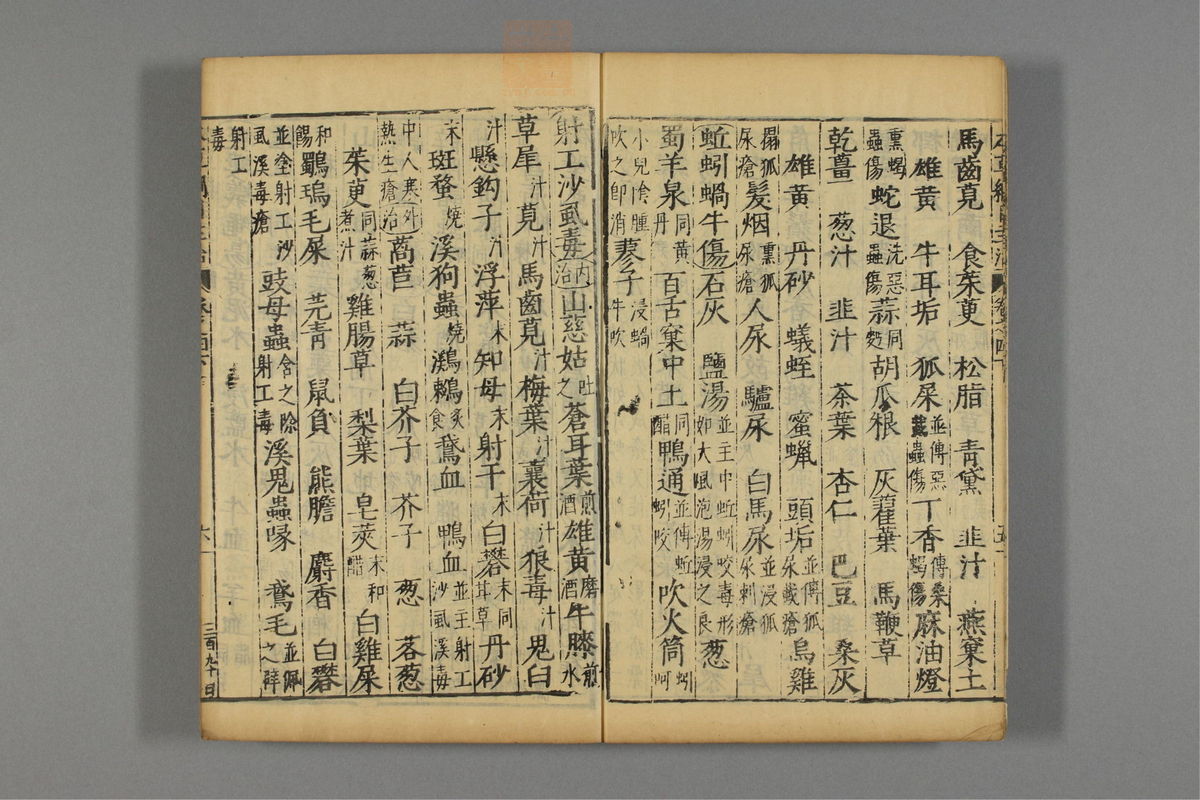 馬齒莧 食茱萸 松脂 青黛 韭汁 燕窠土
雄黄 牛耳垢 狐屎並傅惡蠚蟲傷 丁香傅桑蝎傷 麻油燈
熏蝎蟲傷 蛇退洗惡蟲傷 蒜同麪 胡瓜根 灰藋葉 馬鞭草
乾薑 葱汁 韭汁 茶葉 杏仁 巴豆 桑灰
雄黄 丹砂 蟻蛭 蜜蠟 頭垢並傅狐尿蠚瘡 烏雞
搨狐尿瘡 髮烟熏狐尿瘡 人尿 驢尿 白馬尿並浸狐尿刺瘡
蚯蚓蝸牛傷 石灰 鹽湯並主中蚯蚓咬毒形如大風泡湯浸之良 葱
蜀羊泉同黄丹 百舌窠中土同醋 鴨通並傅蚯蚓咬 吹火筒蚓呵
吹之即消小兒陰腫 蓼子浸蝸牛吹
射工沙虱毒 内治 山慈姑吐之 蒼耳葉煎酒 雄黄磨酒 牛膝煎水
草犀汁 莧汁 馬齒莧汁 梅葉汁 蘘荷汁 狼毒汁 鬼臼
汁 懸鈎子汁 浮萍末 知母末 射干末 白礬末同甘草 丹砂
末 斑蝥燒 溪狗蟲燒 鸂鶒炙食 鵞血 鴨血並主射工沙虱溪毒
中人寒熱生瘡 外治 萵苣 蒜 白芥子 芥子 葱 茖葱
茱萸同蒜葱煮汁 雞腸草 梨葉 皂莢末和醋 白雞屎
和餳 鸀鳿毛屎 芫青 鼠負 熊膽 麝香 白礬
並塗射工沙虱溪毒瘡 豉母蟲含之除射工毒 溪鬼蟲喙 鵞毛並佩之辟
射工毒